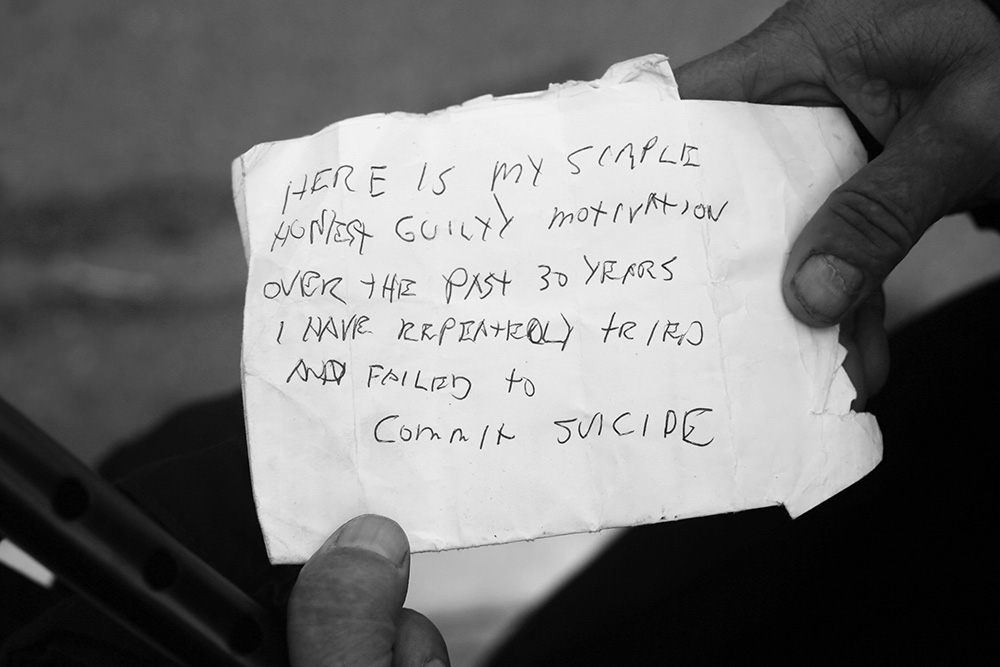 HERE IS MY SIMPLE
HONEST GUILTY MOTIVATION
OVER THE PAST 30 YEARS
I HAVE REPEATEDLY TRIED
AND FAILED TO
COMMIT SUICIDE